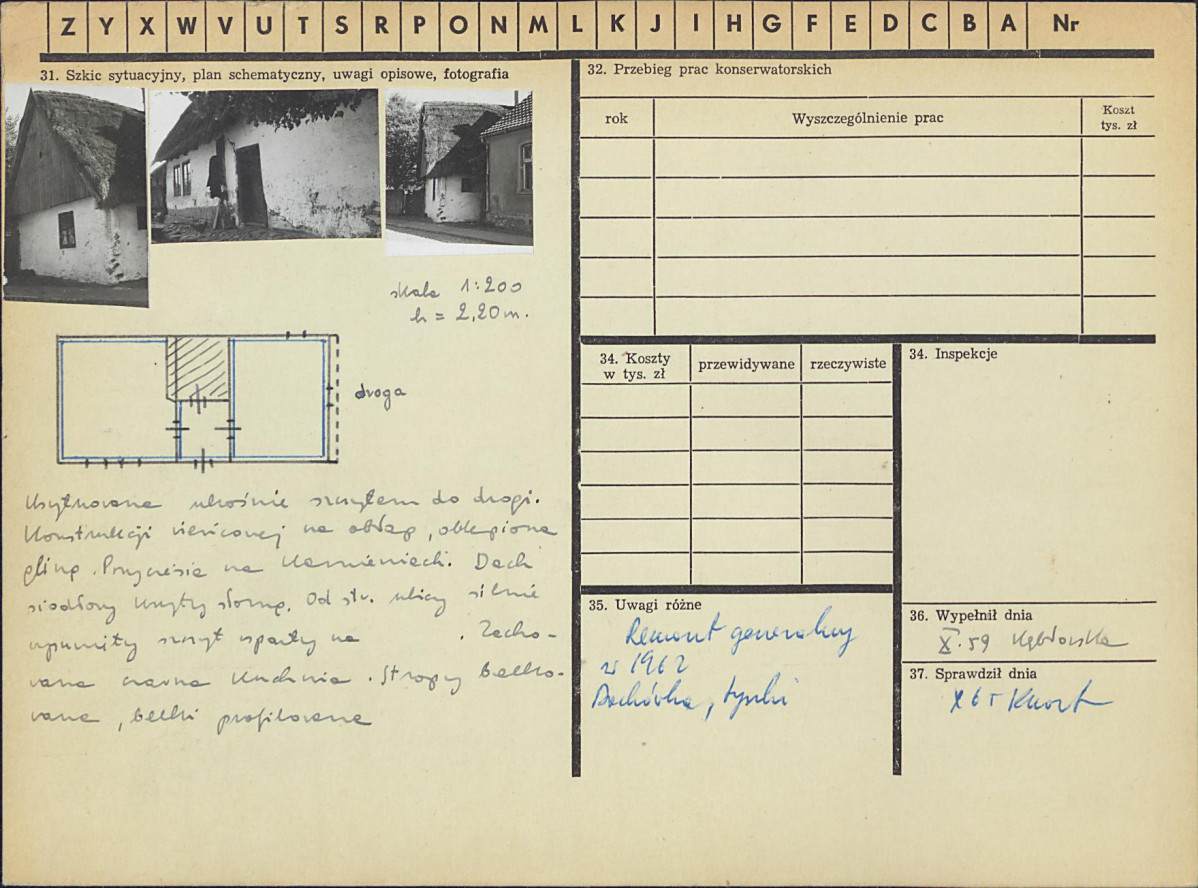 Z Y X W V U T S R P O N M L K J I H G F E D C B A Nr
31. Szkic sytuacyjny, plan schematyczny, uwagi opisowe, fotografia
skala 1:200
h = 2,20 m.
droga
Usytuowana ukośnie szczytem do drogi.
Konstrukcji wieńcowej na obłap, oblepiona
gliną. Przyciesie na kamieniach. Dach
siodłowy kryty słomą. Od str. ulicy silnie
wysunięty szczyt wparty na . Zacho-
wana czarna kuchnia. Stropy belko-
wane, belki profilowane
32. Przebieg prac konserwatorskich
rok
Wyszczególnienie prac
Koszt
tys. zł
34. Koszty
w tys. zł
przewidywane
rzeczywiste
34. Inspekcje
35. Uwagi różne
Remont generalny
w 1962
Dachówka, tynki
36. Wypełnił dnia
X.59
37. Sprawdził dnia